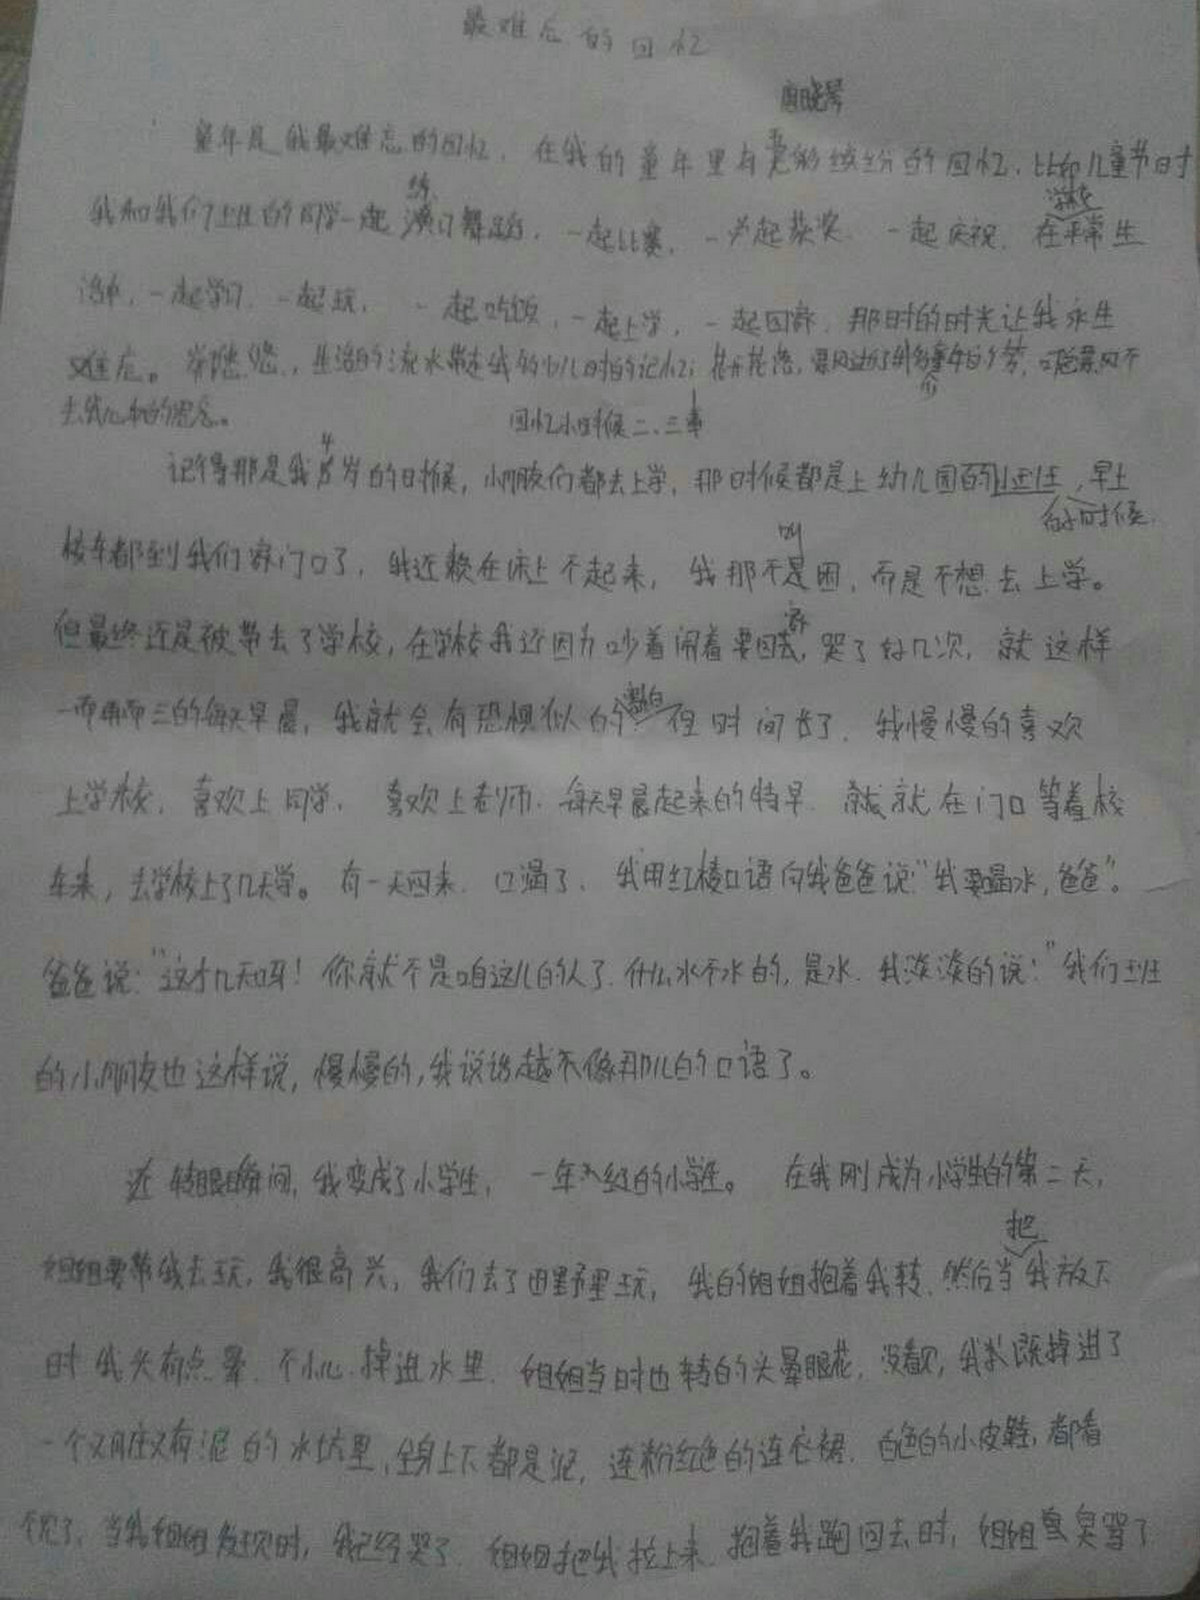 最难忘的回忆
童年是我最难忘的回忆，在我的童年里有五彩缤纷的回忆，比如儿童节时
我和我们班的同学一起练习舞蹈，一起比赛，一起获奖，一起庆祝，在学校平常生
活中，一起学习，一起玩，一起吃饭，一起上学，一起回家，那时的时光让我永生
难忘。岁月悠悠，生活的流水带走我的少儿时的记忆；花开花落，
去我心中的思念。
回忆小时候二、三事
记得那是我4岁的时候，小朋友们都去上学，那时候都是上幼儿园的班，早上的时候
校车都到我们家门口了，我还赖在床上不起来，我那不叫困，而是不想去上学。
但最终还是被带去了学校，在学校我还因为吵着闹着要回家，哭了好几次，就这样
一而再而三的每天早晨，我就会有恐惧似的，但时间长了，我慢慢的喜欢
上学校，喜欢上同学，喜欢上老师，每天早晨起来的特早，就在门口等着校
车来，去学校上了几天学。有一天回来，口渴了，我用红楼口语向我爸爸说“我要喝水，爸爸”。
爸爸说：“这才几天呀！你就不是咱这儿的人了，什么水不水的，是水，我淡淡的说：“我们班
的小朋友也这样说，慢慢的，我说话越不像那儿的口语了。
转眼瞬间，我变成了小学生，一年级的小学生。在我刚成为小学生的第二天，
姐姐要带我去玩，我很高兴，我们去了田野里玩，我的姐姐抱着我转，然后当把我放下
时我头有点晕，不小心掉进水里，姐姐当时也转的头晕眼花，没看见，我就掉进了
一个又脏又有泥的水坑里，全身上下都是泥，连粉红色的连衣裙，白色的小皮鞋，都看
不见了，当我姐姐发现时，我已经哭了，姐姐把我拉上来，抱着我跑回去时，姐姐